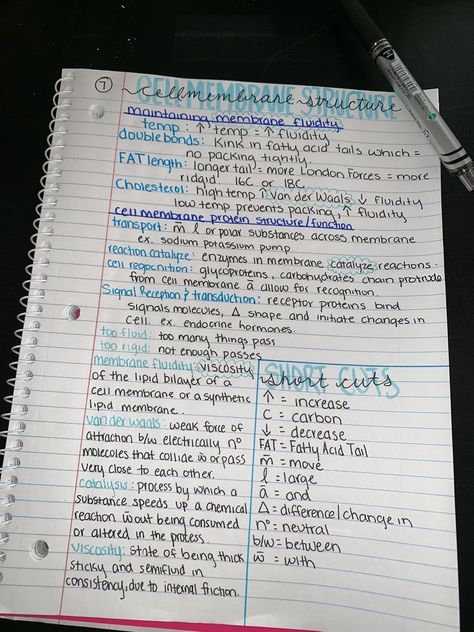 7
CELL MEMBRANE STRUCTURE
cell membrane structure
maintaining membrane fluidity
temp: ↑ temp = ↑ fluidity
double bonds: Kink in fatty acid tails which =
no packing tightly.
FAT length: longer tail = more London Forces = more
ridgid. 16C or 18C
Cholesterol: high temp ↑ Van der Waals, ↓ fluidity
low temp prevents packing, ↑ fluidity
cell membrane protein structure/function
transport: m̄ l or polar substances across membrane
ex. sodium potassium pump
reaction catalyze: enzymes in membrane catalyze reactions.
cell regocnition: glycoproteins, carbohydrates chain protrude
from cell membrane ā allow for recognition.
Signal Reception & transduction: receptor proteins bind
signals molecules, Δ shape and initiate changes in
cell. ex. endocrine hormones.
too fluid: too many things pass
too rigid: not enough passes
membrane fluidity: viscosity
of the lipid bilayer of a
cell membrane or a synthetic
lipid membrane.
van der waals: weak force of
attraction b/w electrically n°
molecules that collide w̄ or pass
very close to each other.
catalysis: process by which a
substance speeds up a chemical
reaction w̄out being consumed
or altered in the process.
viscosity: state of being thick
sticky and semifluid in
consistency, due to internal friction.
SHORT CUTS
short cuts
↑ = increase
C = carbon
↓ = decrease
FAT = Fatty Acid Tail
m̄ = move
l = large
ā = and
Δ = difference/change in
n° = neutral
b/w = between
w̄ = with